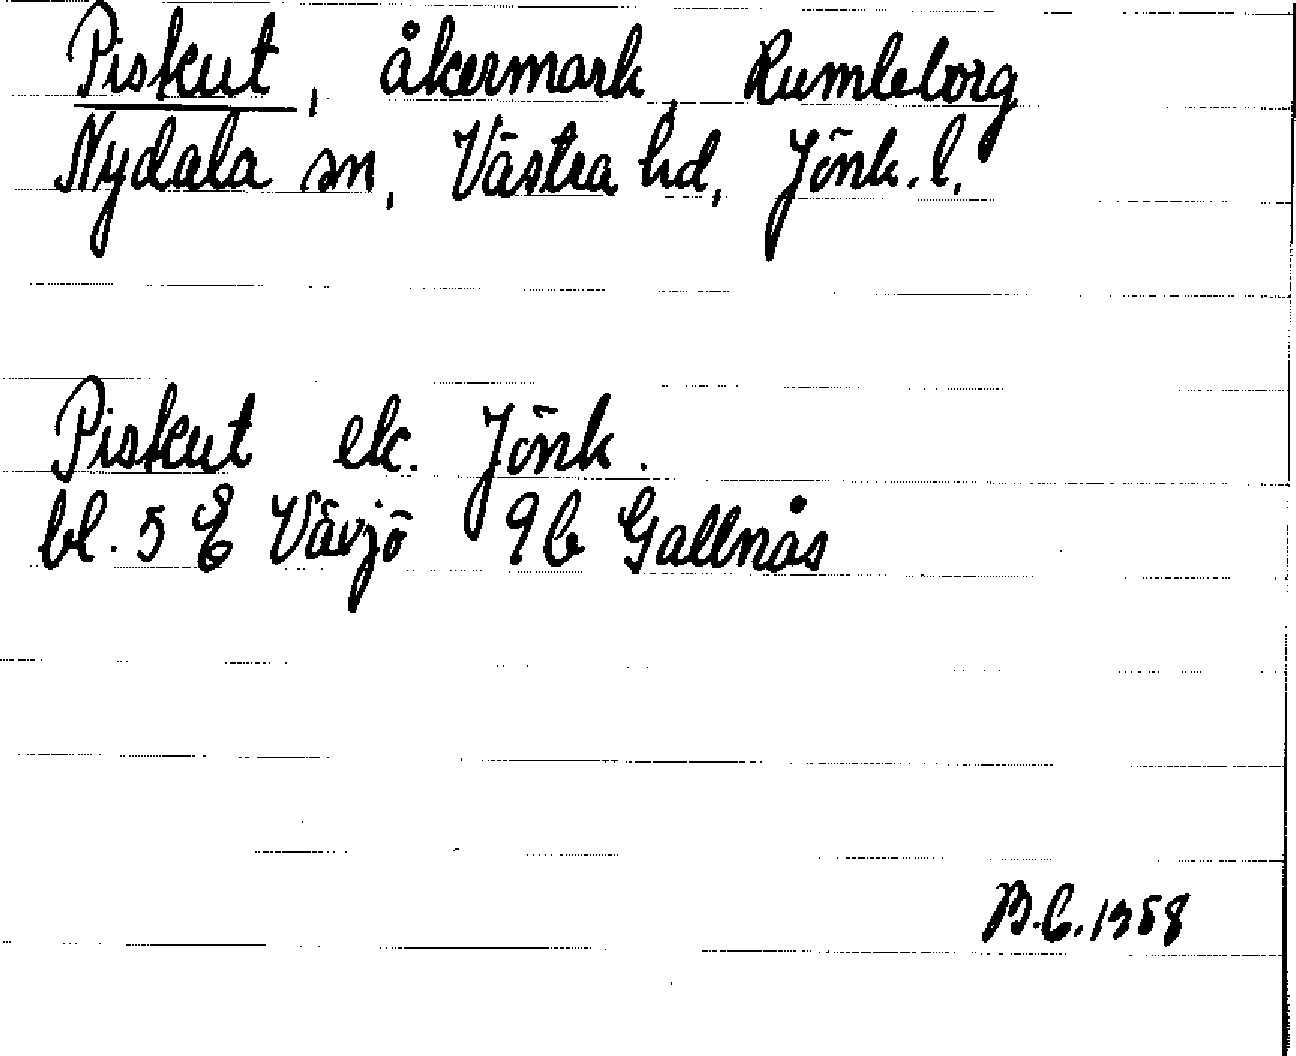 Piskut, åkermark, Rumleborg
Nydala sn, Västra hd, Jönk. l.
Piskut ek. Jönk.
bl. 5 E Växjö 9b Gallnås
B.C. 1958